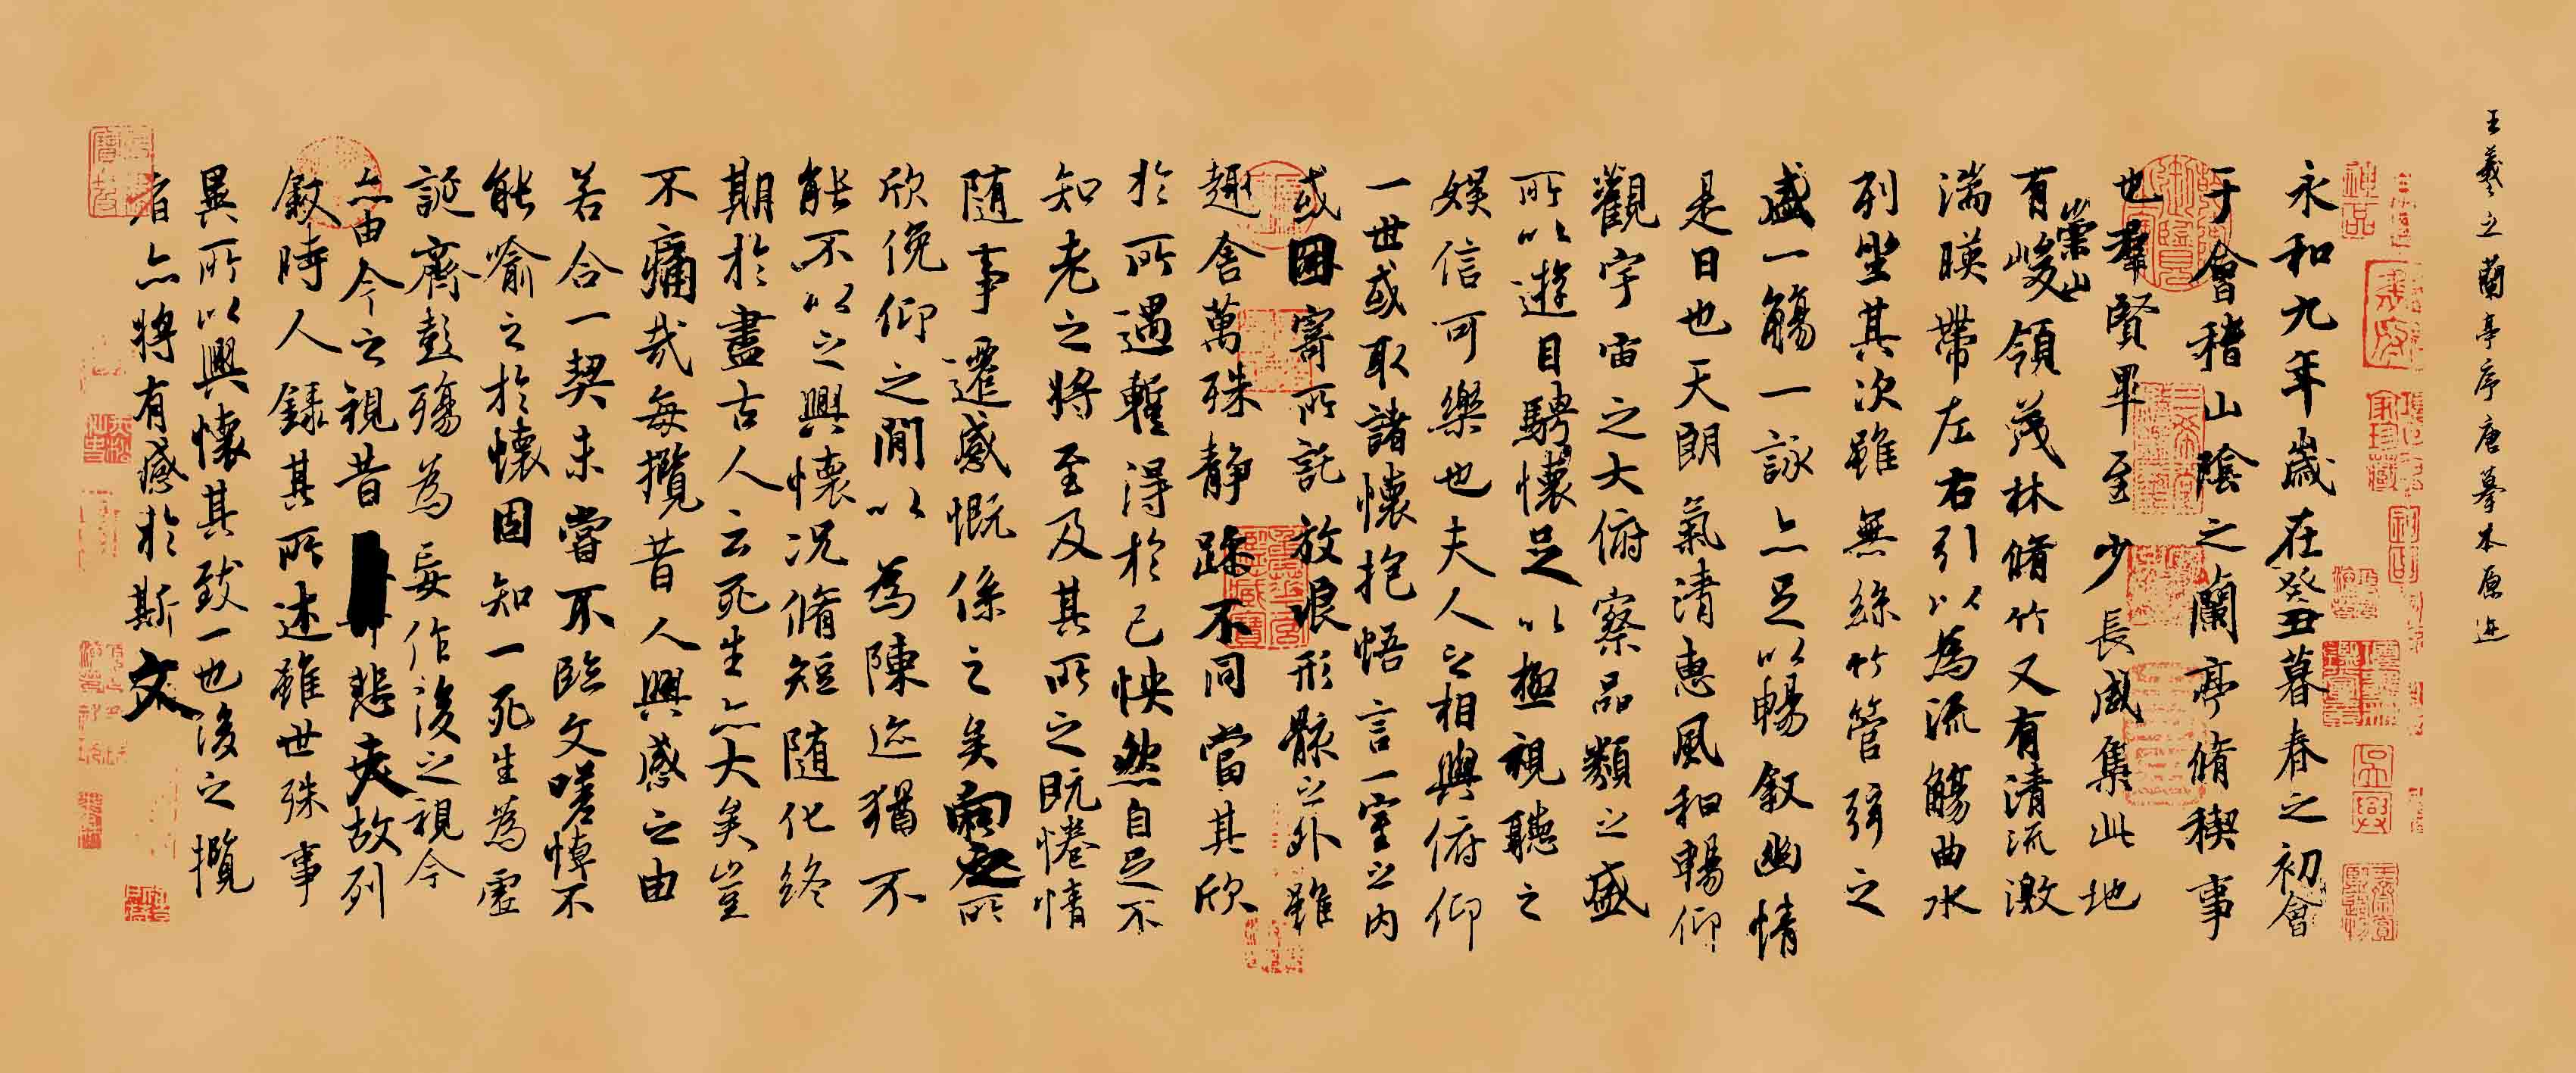 王羲之蘭亭序唐摹本原迹
永和九年歲在癸丑暮春之初會
于會稽山陰之蘭亭脩稧事
也羣賢畢至少長咸集此地
有崇山峻領茂林脩竹又有清流激
湍暎帶左右引以為流觴曲水
列坐其次雖無絲竹管弦之
盛一觴一詠亦足以暢叙幽情
是日也天朗氣清惠風和暢仰
觀宇宙之大俯察品類之盛
所以遊目騁懷足以極視聽之
娛信可樂也夫人之相與俯仰
一世或取諸懷抱悟言一室之內
或因寄所託放浪形骸之外雖
趣舍萬殊静躁不同當其欣
於所遇蹔得於己怏然自足不
知老之將至及其所之既惓情
随事遷感慨係之矣向之所
欣俛仰之閒以為陳迹猶不
能不以之興懷況脩短随化終
期於盡古人云死生亦大矣豈
不痛哉每攬昔人興感之由
若合一契未嘗不臨文嗟悼不
能喻之於懷固知一死生為虛
誕齊彭殤為妄作後之視今
亦由今之視昔悲夫故列
叙時人錄其所述雖世殊事
異所以興懷其致一也後之攬
者亦將有感於斯文